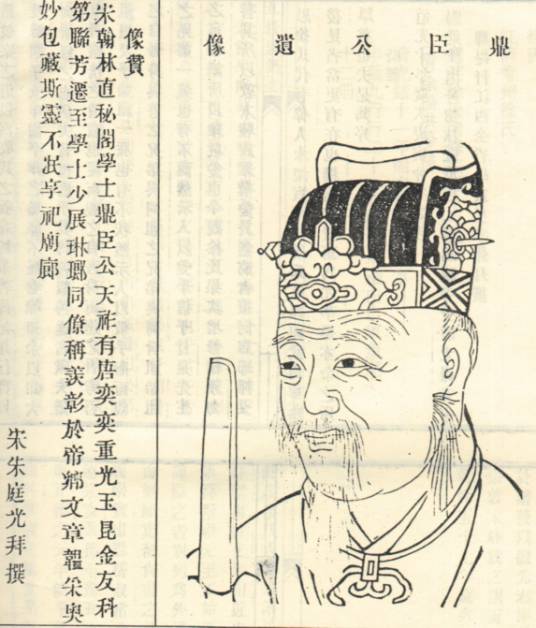 鼎臣公遺像
像賛
宋翰林直秘閣學士鼎臣公 天祚有唐奕奕重光玉昆金友科
第聯芳遷至學士少展琳瑯同僚稱羨彰於帝鄉文章韞采奥
妙包藏斯靈不泯享祀廟廊
宋朱庭光拜撰